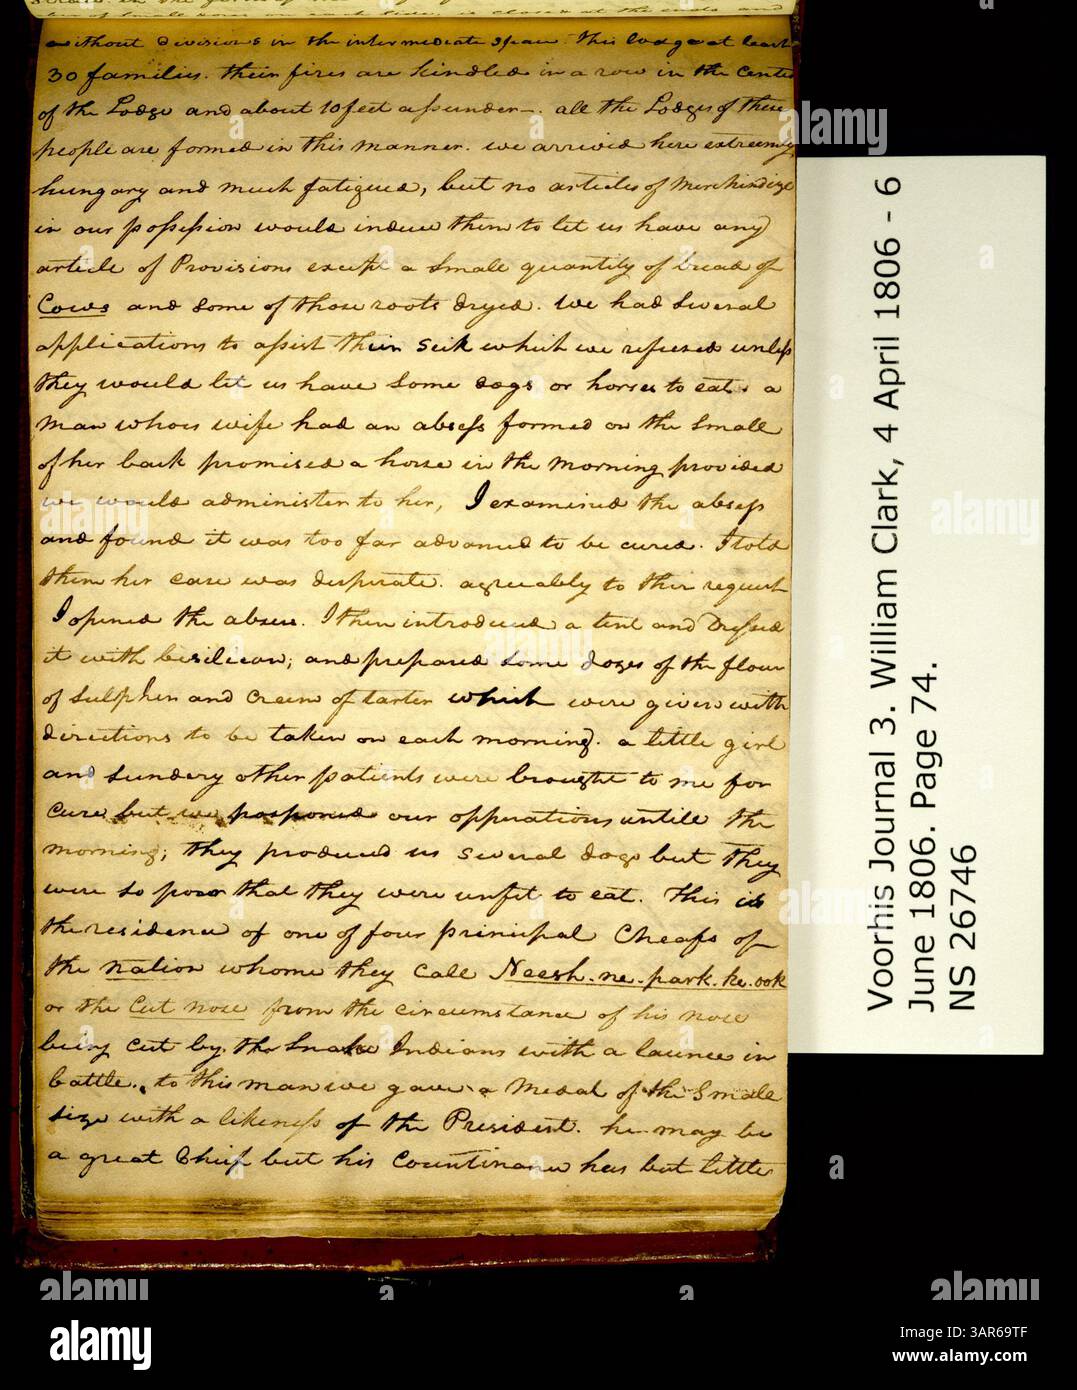 without divisions in the intermediate space. this lodge at least
30 families. their fires are kindled in a row in the Center
of the Lodge and about 10 feet assunder. all the Lodges of these
people are formed in this manner. we arrived here extreemly
hungary and much fatigued, but no articles of merchindize
in our possession would induce them to let us have any
article of Provisions except a Small quantity of bread of
Cows and some of those roots dryed. we had Several
applications to assist their Sick which we refused unless
they would let us have Some dogs or horses to eat. a
man whos wife had an abscess formed on the Small
of her back promised a horse in the morning provided
we would administer to her, I examined the abscess
and found it was too far advanced to be cured. I told
them her case was desperate. agreeably to their request
I opened the abscess. I then introduced a tent and Dressed
it with bisilicon; and prepared Some dozes of the flour
of Sulpher and Creem of tarter which were given with
directions to be taken on each morning. a little girl
and Sundery other patients were brought to me for
cure but we posponed our opperations untill the
morning; they produced us Several dogs but they
were So poor that they were unfit to eat. This is
the residence of one of four principal Cheafs of
the nation whome they Call Neesh-ne-park-ke-ook
or the Cut nose from the circumstance of his nose
being cut by the Snake Indians with a launce in
battle. to this man we gave a Medal of the Small
Size with a likeness of the President. he may be
a great Chief but his Countinance has but little
Voorhis Journal 3. William Clark, 4 April 1806 - 6
June 1806. Page 74.
NS 26746
alamy
Image ID: 3AR69TF
www.alamy.com